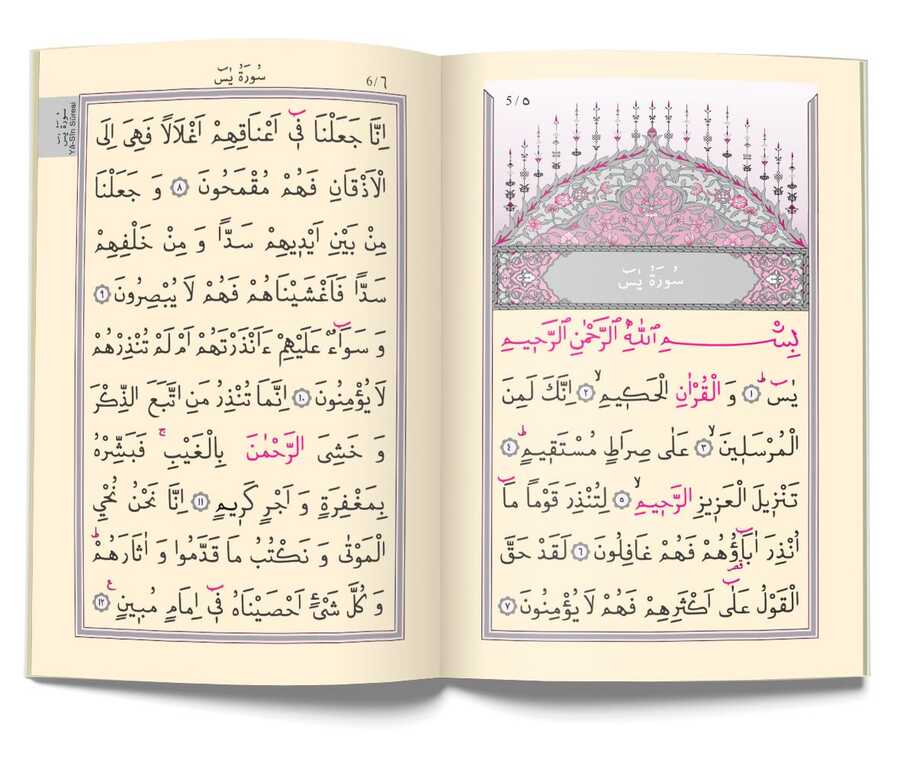 5/٥
سُورَةُ يٰسٓ
بِسْــــــمِ اللّٰهِ الرَّحْمٰنِ الرَّحٖيمِ
يٰسٓ ﴿١﴾ وَ الْقُرْاٰنِ الْحَكٖيمِ ﴿٢﴾ اِنَّكَ لَمِنَ
الْمُرْسَلٖينَ ﴿٣﴾ عَلٰى صِرَاطٍ مُسْتَقٖيمٍ ﴿٤﴾
تَنْزٖيلَ الْعَزٖيزِ الرَّحٖيمِ ﴿٥﴾ لِتُنْذِرَ قَوْمًا مَٓا
اُنْذِرَ اٰبَٓاؤُ۬هُمْ فَهُمْ غَافِلُونَ ﴿٦﴾ لَقَدْ حَقَّ
الْقَوْلُ عَلٰٓى اَكْثَرِهِمْ فَهُمْ لَا يُؤْمِنُونَ ﴿٧﴾
سُورَةُ يٰسٓ
6/٦
سُورَةُ يٰسٓ
YÂ-Sîn Sûresi
اِنَّا جَعَلْنَا فٖٓى اَعْنَاقِهِمْ اَغْلَالًا فَهِىَ اِلَى
الْاَذْقَانِ فَهُمْ مُقْمَحُونَ ﴿٨﴾ وَ جَعَلْنَا
مِنْ بَيْنِ اَيْدٖيهِمْ سَدًّا وَ مِنْ خَلْفِهِمْ
سَدًّا فَاَغْشَيْنَاهُمْ فَهُمْ لَا يُبْصِرُونَ ﴿٩﴾
وَ سَوَٓاءٌ عَلَيْهِمْ ءَاَنْذَرْتَهُمْ اَمْ لَمْ تُنْذِرْهُمْ
لَا يُؤْمِنُونَ ﴿١٠﴾ اِنَّمَا تُنْذِرُ مَنِ اتَّبَعَ الذِّكْرَ
وَ خَشِىَ الرَّحْمٰنَ بِالْغَيْبِ فَبَشِّرْهُ
بِمَغْفِرَةٍ وَ اَجْرٍ كَرٖيمٍ ﴿١١﴾ اِنَّا نَحْنُ نُحْيِ
الْمَوْتٰى وَ نَكْتُبُ مَا قَدَّمُوا وَ اٰثَارَهُمْ
وَ كُلَّ شَىْءٍ اَحْصَيْنَاهُ فٖٓى اِمَامٍ مُبٖينٍ ﴿١٢﴾